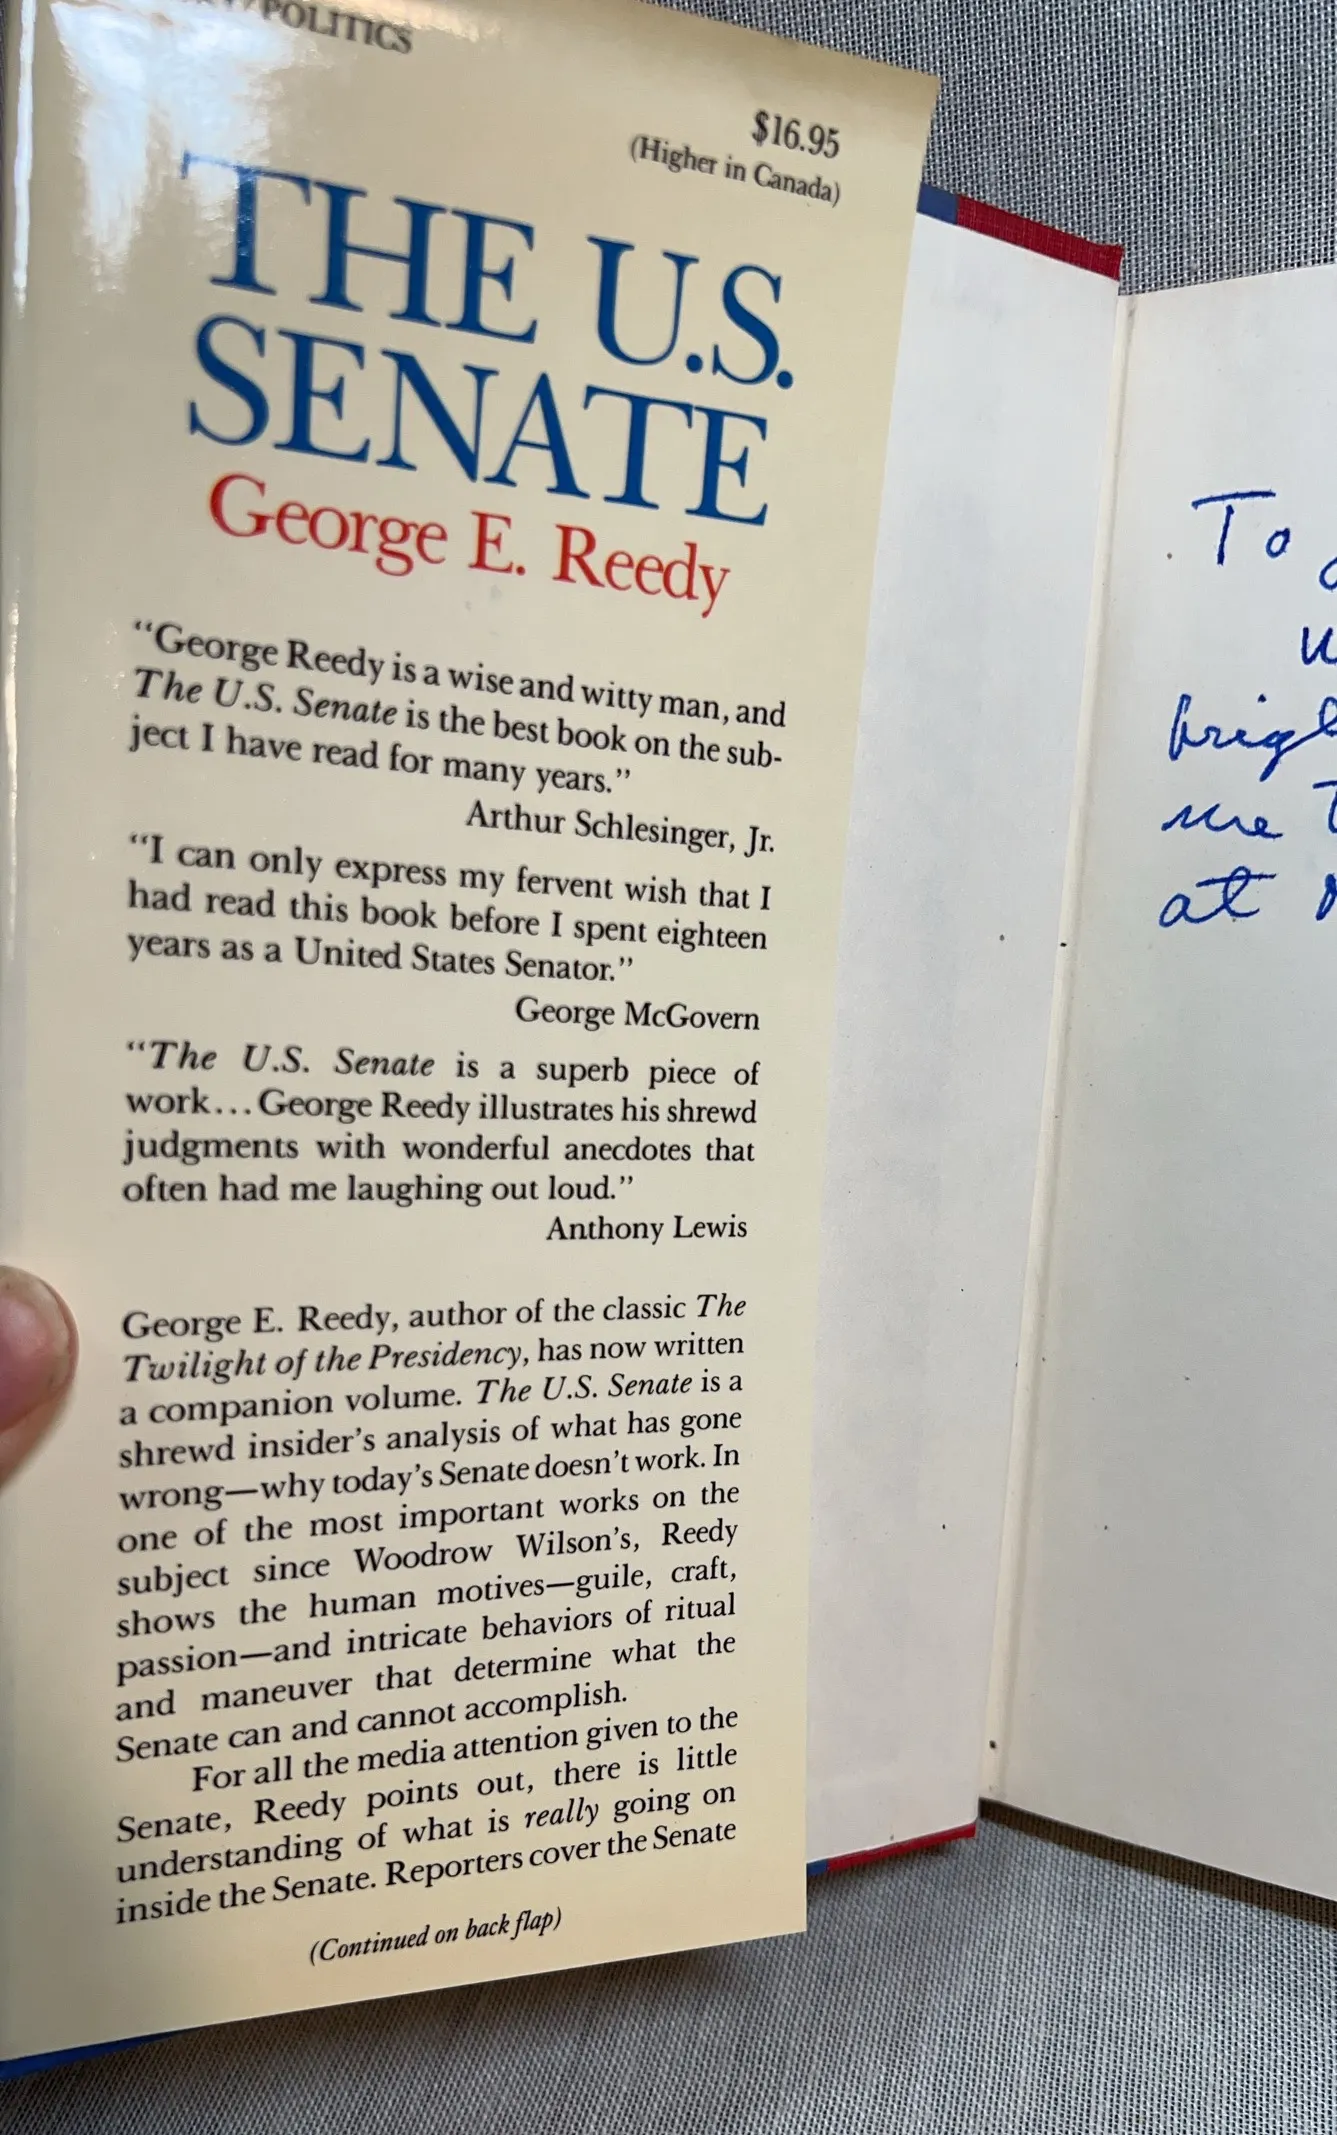 POLITICS
$16.95
(Higher in Canada)
THE U.S.
SENATE
George E. Reedy
“George Reedy is a wise and witty man, and
The U.S. Senate is the best book on the sub-
ject I have read for many years.”
Arthur Schlesinger, Jr.
“I can only express my fervent wish that I
had read this book before I spent eighteen
years as a United States Senator.”
George McGovern
“The U.S. Senate is a superb piece of
work...George Reedy illustrates his shrewd
judgments with wonderful anecdotes that
often had me laughing out loud.”
Anthony Lewis
George E. Reedy, author of the classic The
Twilight of the Presidency, has now written
a companion volume. The U.S. Senate is a
shrewd insider’s analysis of what has gone
wrong—why today’s Senate doesn’t work. In
one of the most important works on the
subject since Woodrow Wilson’s, Reedy
shows the human motives—guile, craft,
passion—and intricate behaviors of ritual
and maneuver that determine what the
Senate can and cannot accomplish.
For all the media attention given to the
Senate, Reedy points out, there is little
understanding of what is really going on
inside the Senate. Reporters cover the Senate
(Continued on back flap)
To
me
at